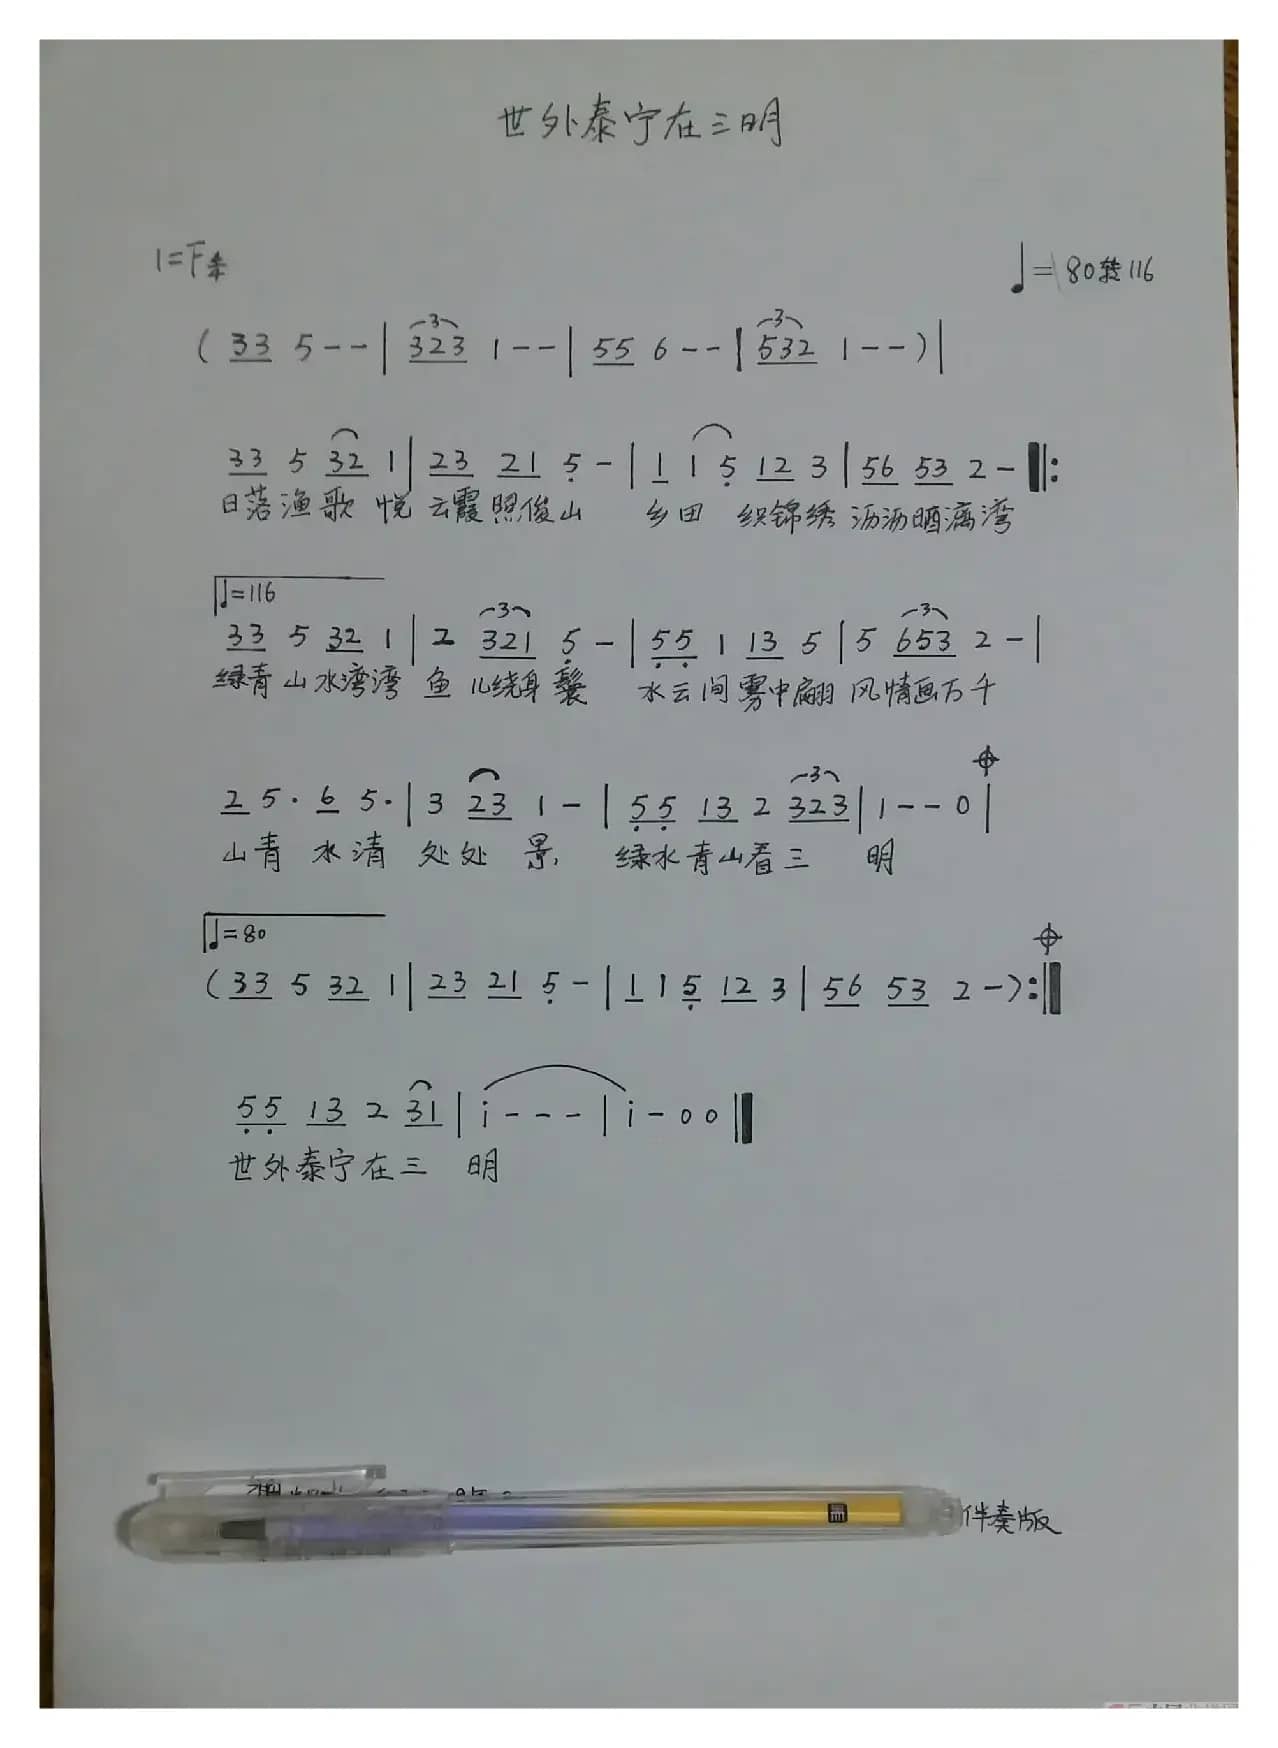 世外泰宁在三明
1=F 4/4
♩= 80转116
( 33 5 - - | 323 1 - - | 55 6 - - | 532 1 - - ) |
33 5 32 1 | 23 21 5 - | 1 1 5 12 3 | 56 53 2 - ‖:
日落渔歌 悦 云霞照俊山 乡田 织锦绣 沥沥晒漓湾
♩=116
33 5 32 1 | 2 321 5 - | 55 1 13 5 | 5 653 2 - |
绿青山水湾湾 鱼儿绕身鬟 水云间雾中翩 风情画万千
2 5· 6 5· | 3 23 1 - | 55 13 2 323 | 1 - - 0 |
山青 水清 处处 景 绿水青山看三 明
♩=80
( 33 5 32 1 | 23 21 5 - | 1 1 5 12 3 | 56 53 2 - ) :‖
55 13 2 31 | i - - - | i - 0 0 ‖
世外泰宁在三 明
伴奏版